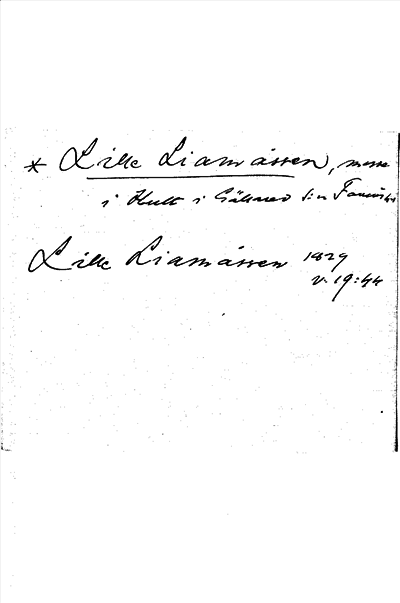 * Lille Liamåssen, mosse
i Hult i Gällared s:n Faurås hd
Lille Liamåssen 1829
v. 19:44